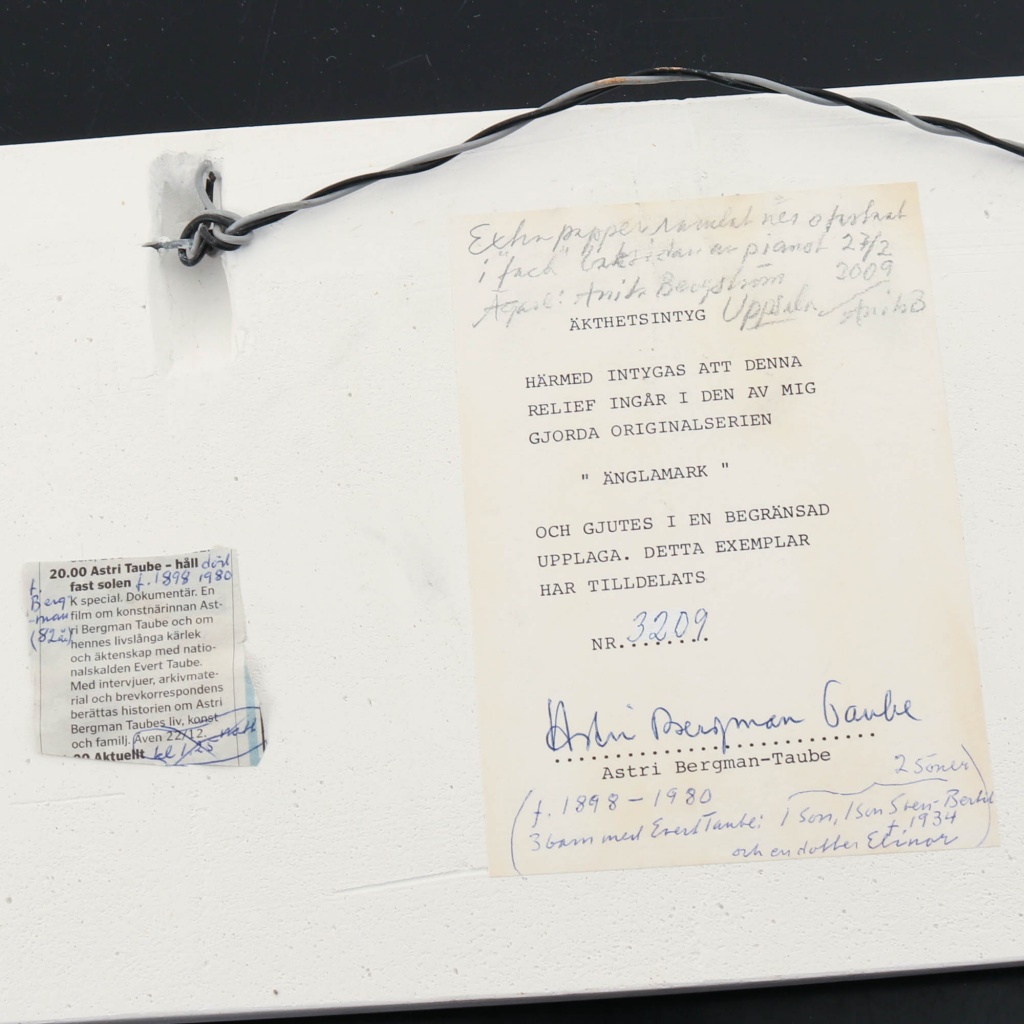 20.00 Astri Taube – håll död
fast solen f. 1898 1980
f. Berg-man (82 år)
K special. Dokumentär. En
film om konstnärinnan Ast-
ri Bergman Taube och om
hennes livslånga kärlek
och äktenskap med natio-
nalskalden Evert Taube.
Med intervjuer, arkivmate-
rial och brevkorrespondens
berättas historien om Astri
Bergman Taubes liv, konst
och familj. Även 22/12. natt
00 Aktuellt kl 1/25
Extra papper
i "fack" baksidan av pianot 27/2
Ägare: Anita Bergström 2009
ÄKTHETSINTYG Uppsala Anita B
HÄRMED INTYGAS ATT DENNA
RELIEF INGÅR I DEN AV MIG
GJORDA ORIGINALSERIEN
" ÄNGLAMARK "
OCH GJUTES I EN BEGRÄNSAD
UPPLAGA. DETTA EXEMPLAR
HAR TILLDELATS
NR. 3209
Astri Bergman Taube
Astri Bergman-Taube
2 söner)
(f. 1898 – 1980
3 barn med Evert Taube: 1 son, 1 son Sven-Bertil
† 1934
och en dotter Elinor)